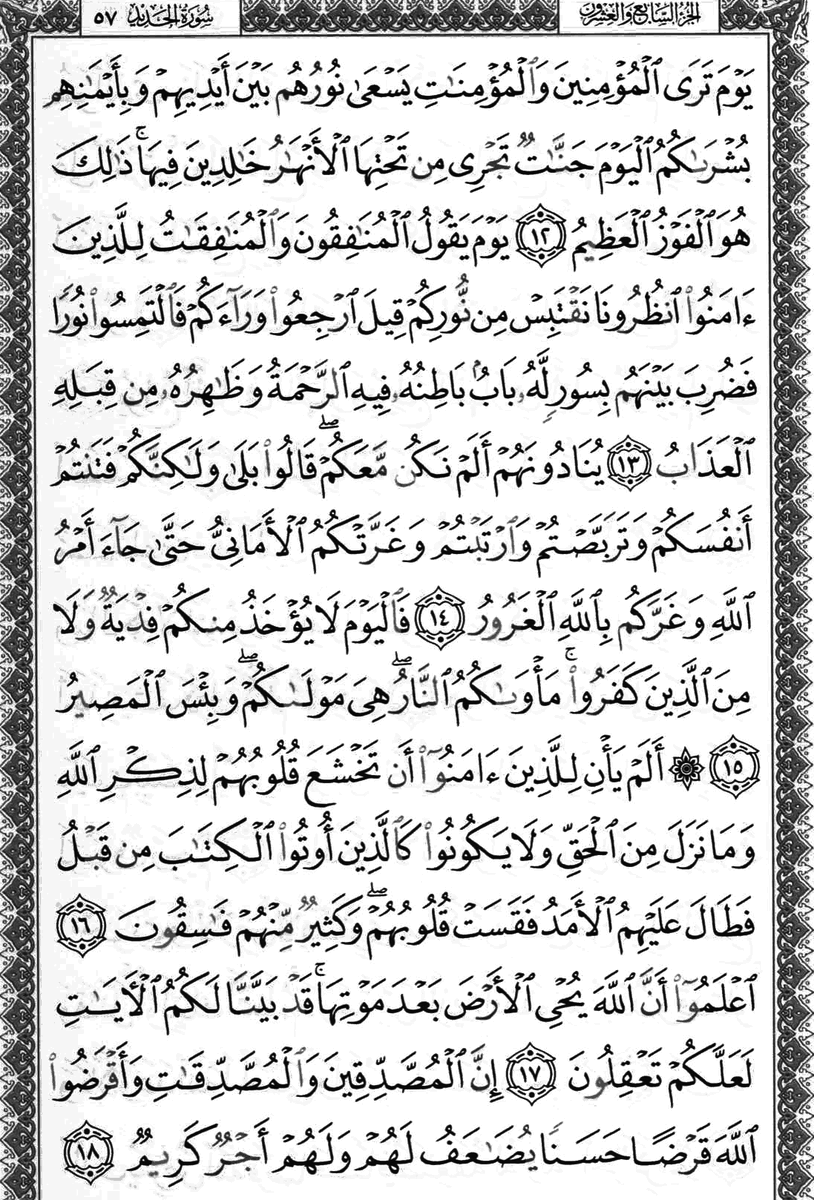 الجزء السابع والعشرون
سورة الحديد ٥٧
يَوْمَ تَرَى ٱلْمُؤْمِنِينَ وَٱلْمُؤْمِنَٰتِ يَسْعَىٰ نُورُهُم بَيْنَ أَيْدِيهِمْ وَبِأَيْمَٰنِهِم
بُشْرَىٰكُمُ ٱلْيَوْمَ جَنَّٰتٌ تَجْرِى مِن تَحْتِهَا ٱلْأَنْهَٰرُ خَٰلِدِينَ فِيهَا ۚ ذَٰلِكَ
هُوَ ٱلْفَوْزُ ٱلْعَظِيمُ ١٢ يَوْمَ يَقُولُ ٱلْمُنَٰفِقُونَ وَٱلْمُنَٰفِقَٰتُ لِلَّذِينَ
ءَامَنُوا۟ ٱنظُرُونَا نَقْتَبِسْ مِن نُّورِكُمْ قِيلَ ٱرْجِعُوا۟ وَرَآءَكُمْ فَٱلْتَمِسُوا۟ نُورًا
فَضُرِبَ بَيْنَهُم بِسُورٍ لَّهُۥ بَابٌۢ بَاطِنُهُۥ فِيهِ ٱلرَّحْمَةُ وَظَٰهِرُهُۥ مِن قِبَلِهِ
ٱلْعَذَابُ ١٣ يُنَادُونَهُمْ أَلَمْ نَكُن مَّعَكُمْ ۖ قَالُوا۟ بَلَىٰ وَلَٰكِنَّكُمْ فَتَنتُمْ
أَنفُسَكُمْ وَتَرَبَّصْتُمْ وَٱرْتَبْتُمْ وَغَرَّتْكُمُ ٱلْأَمَانِىُّ حَتَّىٰ جَآءَ أَمْرُ
ٱللَّهِ وَغَرَّكُم بِٱللَّهِ ٱلْغَرُورُ ١٤ فَٱلْيَوْمَ لَا يُؤْخَذُ مِنكُمْ فِدْيَةٌ وَلَا
مِنَ ٱلَّذِينَ كَفَرُوا۟ ۚ مَأْوَىٰكُمُ ٱلنَّارُ ۖ هِىَ مَوْلَىٰكُمْ ۖ وَبِئْسَ ٱلْمَصِيرُ
١٥ ۞ أَلَمْ يَأْنِ لِلَّذِينَ ءَامَنُوٓا۟ أَن تَخْشَعَ قُلُوبُهُمْ لِذِكْرِ ٱللَّهِ
وَمَا نَزَلَ مِنَ ٱلْحَقِّ وَلَا يَكُونُوا۟ كَٱلَّذِينَ أُوتُوا۟ ٱلْكِتَٰبَ مِن قَبْلُ
فَطَالَ عَلَيْهِمُ ٱلْأَمَدُ فَقَسَتْ قُلُوبُهُمْ ۖ وَكَثِيرٌ مِّنْهُمْ فَٰسِقُونَ ١٦
ٱعْلَمُوٓا۟ أَنَّ ٱللَّهَ يُحْىِ ٱلْأَرْضَ بَعْدَ مَوْتِهَا ۚ قَدْ بَيَّنَّا لَكُمُ ٱلْءَايَٰتِ
لَعَلَّكُمْ تَعْقِلُونَ ١٧ إِنَّ ٱلْمُصَّدِّقِينَ وَٱلْمُصَّدِّقَٰتِ وَأَقْرَضُوا۟
ٱللَّهَ قَرْضًا حَسَنًا يُضَٰعَفُ لَهُمْ وَلَهُمْ أَجْرٌ كَرِيمٌ ١٨